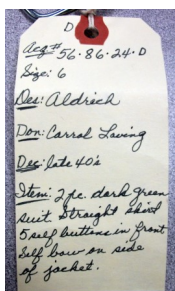 D
Acq# 56·86·24·D
Size: 6
Des: Aldrich
Don: Carral Loving
Dec: late 40's
Item: 2 pc. dark green
suit straight skirt
5 self buttins in front
Self bow on side
of jacket.